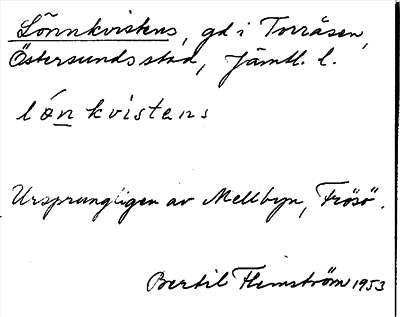 Lönnkvistens, gd i Torråsen,
Östersunds stad, Jämtl. l.
lónkvistens
Ursprungligen av Mellbyn, Frösö.
Bertil Flemström 1953